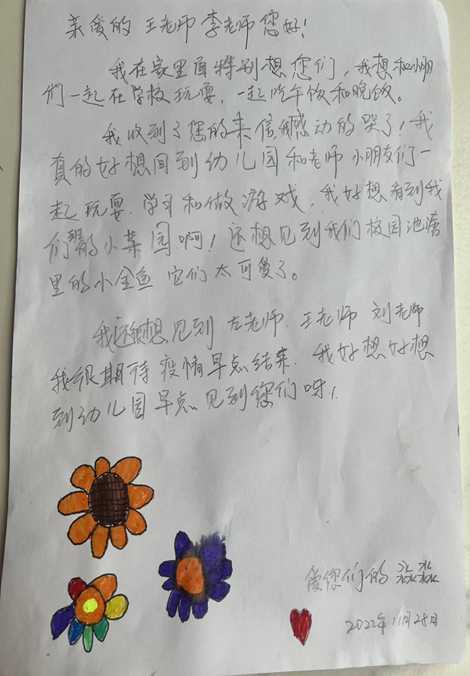 亲爱的 王老师 李老师 您好!
我在家里面特别想您们,我想和小朋
们一起在学校玩耍,一起吃午饭和晚饭。
我收到了您的来信我感动的哭了!我
真的好想回到幼儿园和老师小朋友们一
起玩耍 学习和做游戏,我好想看到我
们的小菜园啊!还想见到我们校园池塘
里的小金鱼 它们太可爱了。
我还想见到 左老师、王老师 刘老师
我很期待疫情早点结束 我好想好想
到幼儿园早点见到您们呀!
爱您们的 淼淼
2022年11月28日